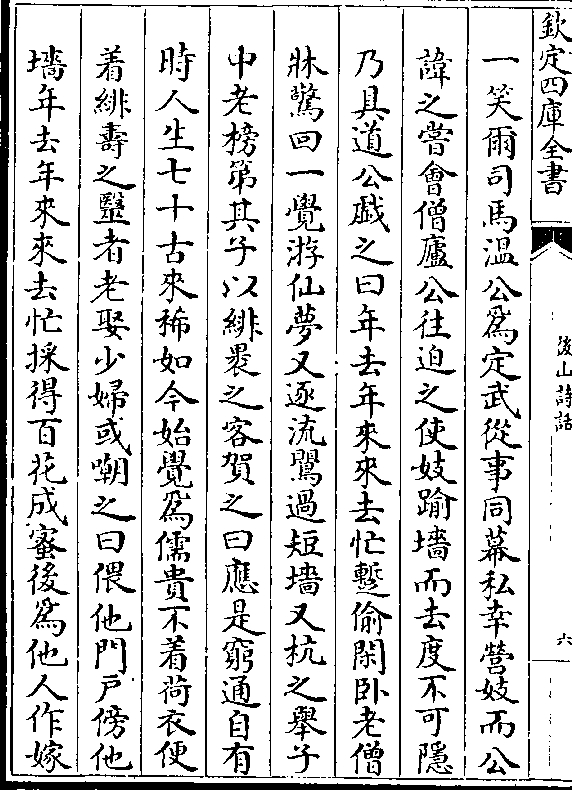 欽定四庫全書
後山詩話
六
一笑爾司馬溫公爲定武從事同幕私幸營妓而公
諱之嘗會僧廬公往迫之使妓踰墻而去度不可隱
乃具道公戲之曰年去年來來去忙蹔偷閑卧老僧
牀驚回一覺游仙夢又逐流鶯過短墻又杭之舉子
中老榜第其子以緋褁之客賀之曰應是窮通自有
時人生七十古來稀如今始覺爲儒貴不着荷衣便
着緋壽之毉者老娶少婦或嘲之曰偎他門戸傍他
墻年去年來來去忙採得百花成蜜後爲他人作嫁